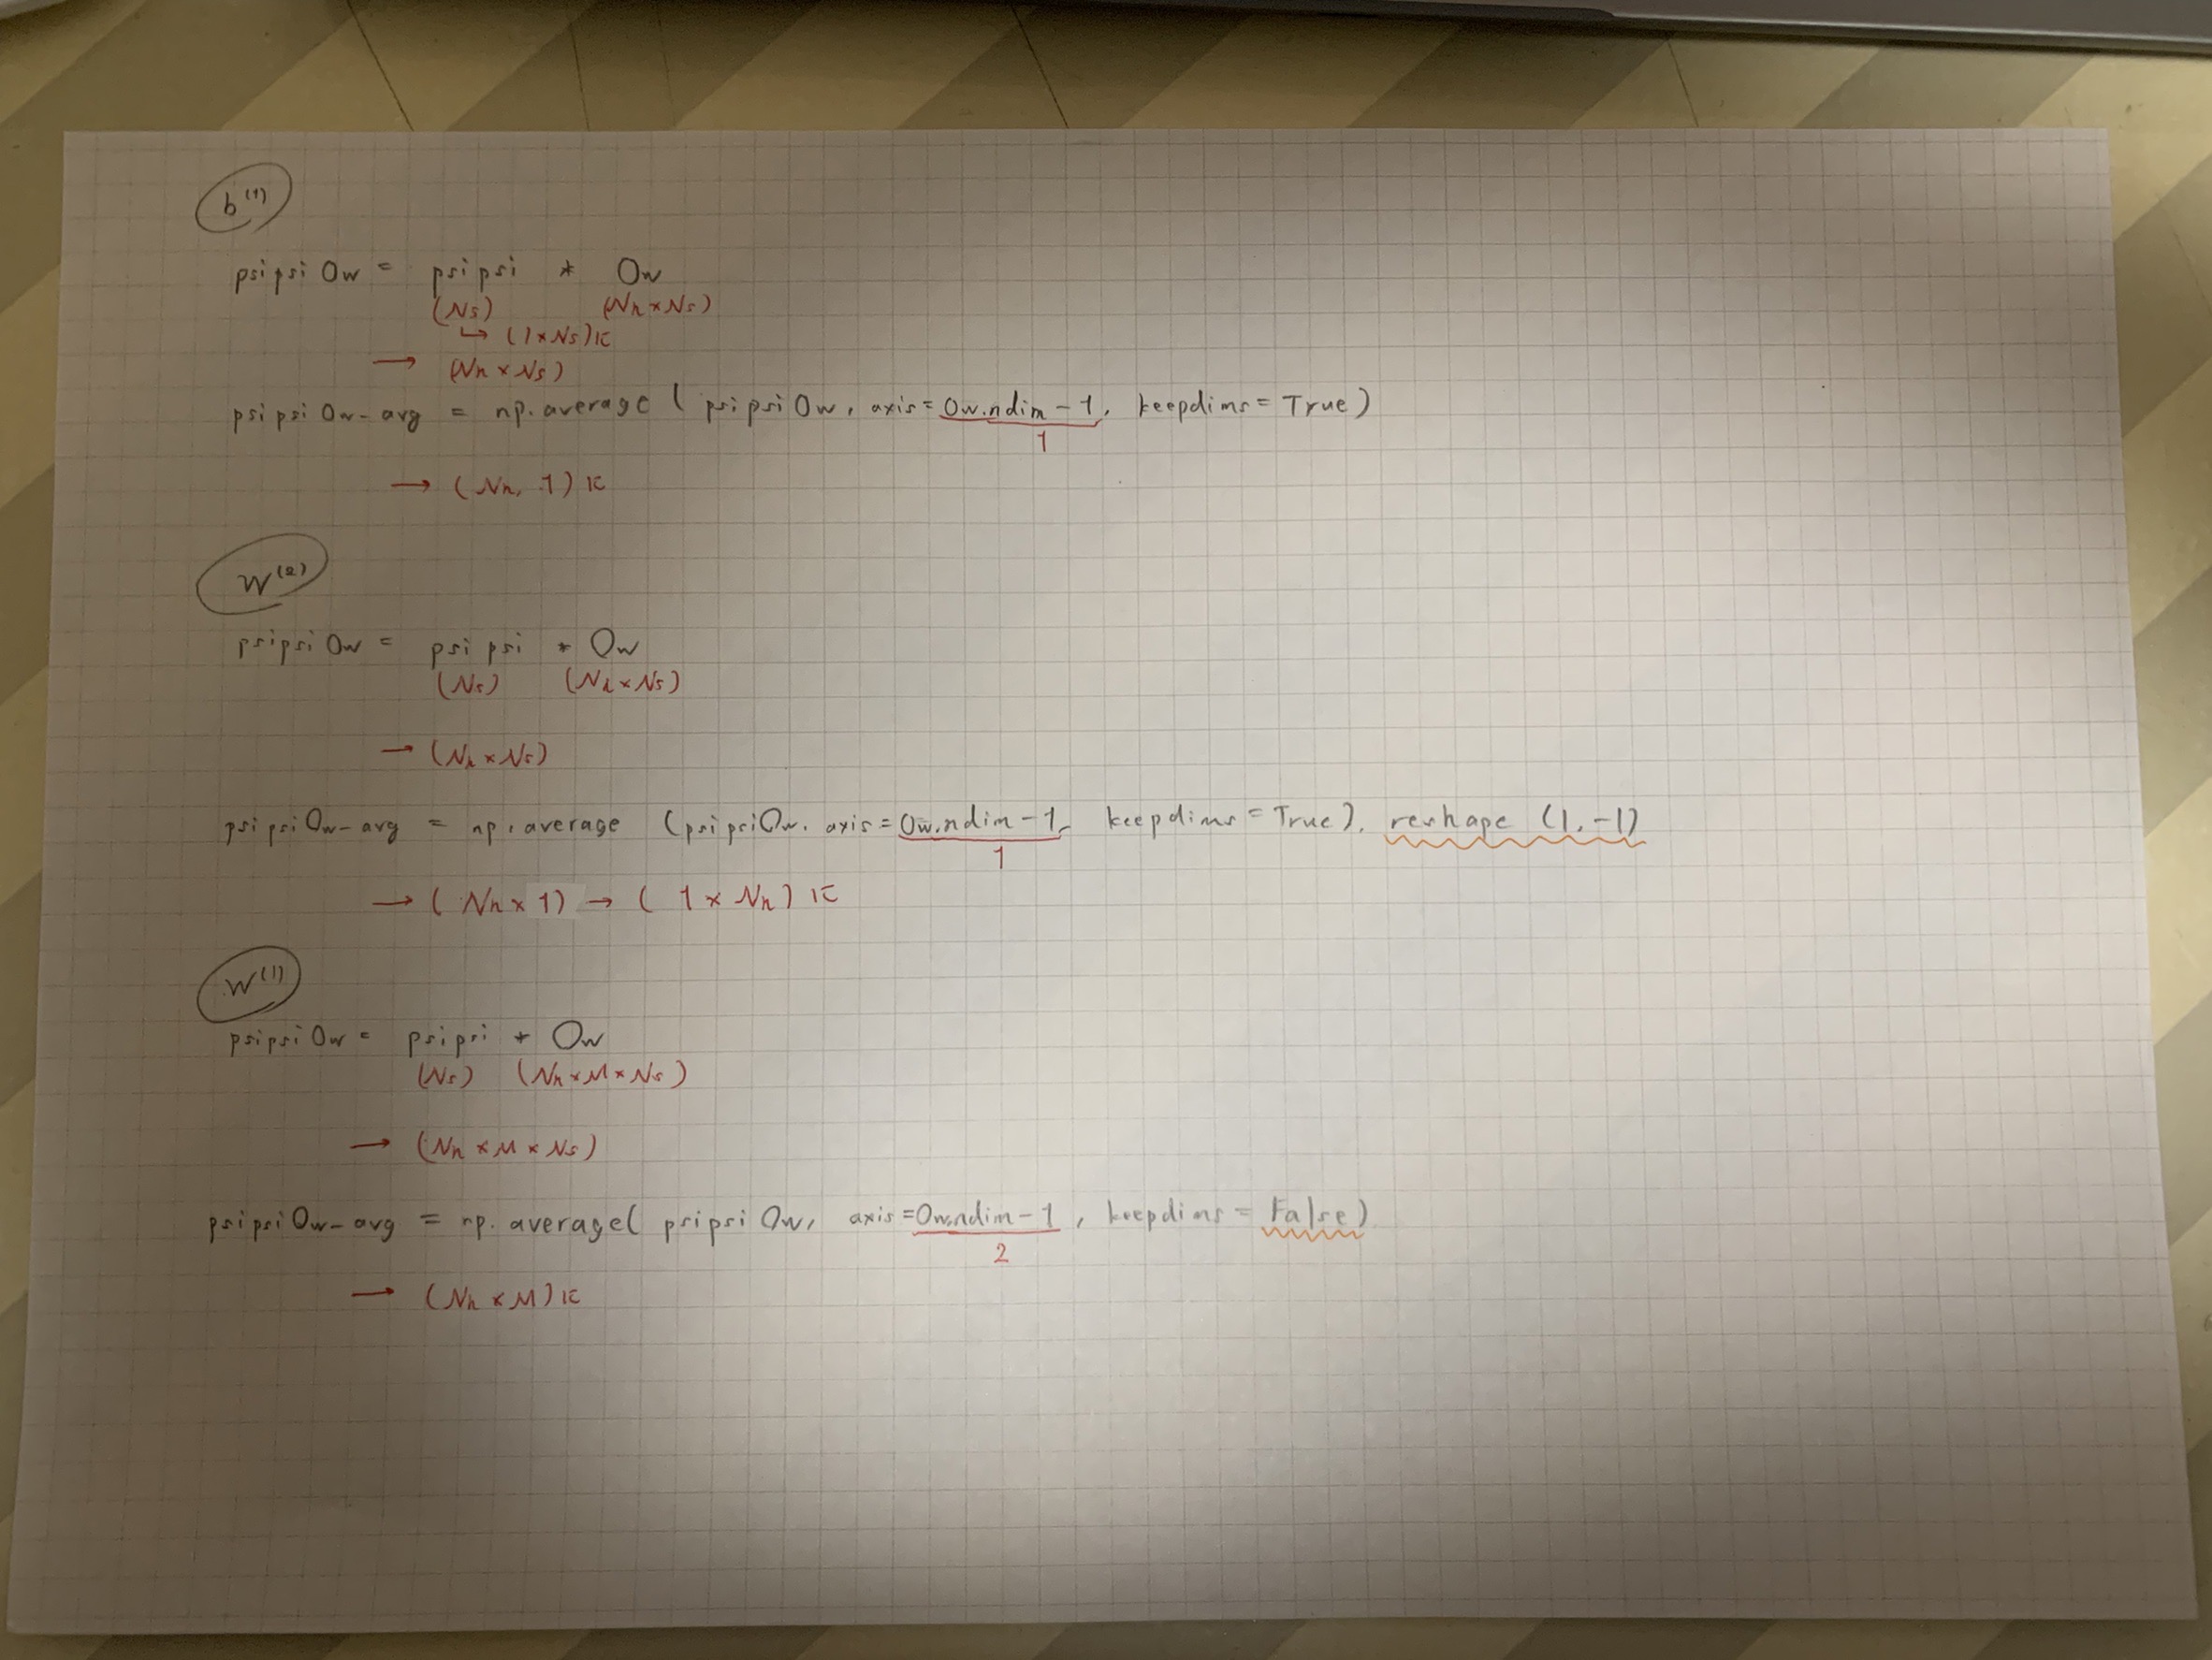 b⁽¹⁾
psipsi Ow = psipsi * Ow
(Ns) (Nh×Ns)
↳ (1×Ns)に
→ (Nh×Ns)
psipsi Ow_avg = np.average ( psipsi Ow, axis=Ow.ndim-1, keepdims=True)
1
→ (Nh, 1)に
W⁽²⁾
psipsi Ow = psipsi * Ow
(Ns) (Nh×Ns)
→ (Nh×Ns)
psipsi Ow_avg = np.average (psipsi Ow, axis=Ow.ndim-1, keepdims=True). reshape (1,-1)
1
→ ( Nh×1) → ( 1×Nh)に
W⁽¹⁾
psipsi Ow = psipsi * Ow
(Ns) (Nh×M×Ns)
→ (Nh×M×Ns)
psipsi Ow_avg = np.average( psipsi Ow, axis=Ow.ndim-1, keepdims=False)
2
→ (Nh×M)に